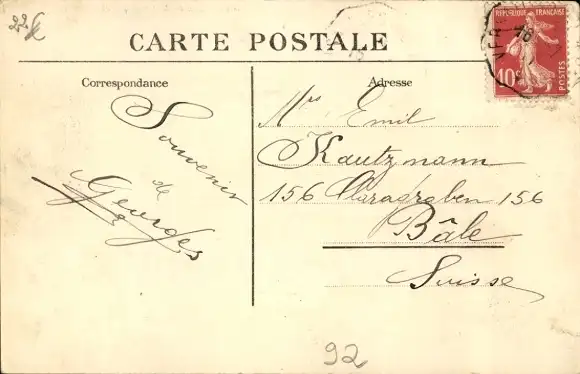 CARTE POSTALE
Correspondance
Souvenir
de
Georges
Adresse
Mrs Emil
Kautzmann
156 Claragraben 156
Bâle
Suisse
REPUBLIQUE FRANÇAISE
10c
POSTES
92